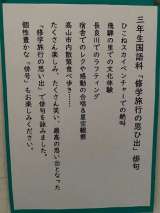 三年生国語科「修学旅行の思ひ出」俳句
ひこねスカイアドベンチャーでの絶叫
飛騨の里での文化体験
長良川でのラフティング
宿舎でのレクや感動の合唱＆星空観察
高山市内散策食べ歩き……
たくさん楽しみ、たくさん笑い、最高の思い出となった
「修学旅行の思い出」で俳句を詠みました。
個性豊かな〝俳号〟もお楽しみください。